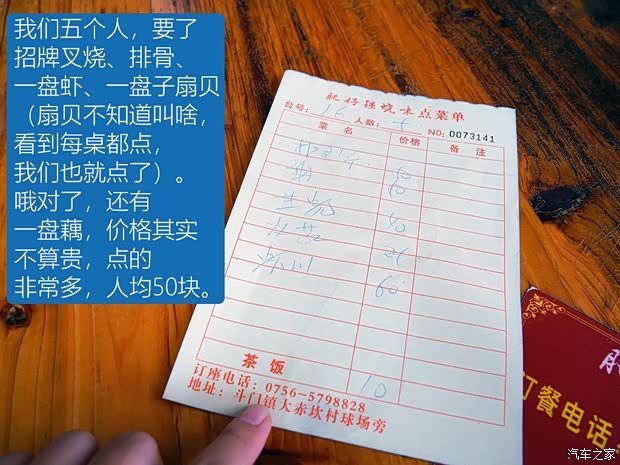 我们五个人，要了
招牌叉烧、排骨、
一盘虾、一盘子扇贝
（扇贝不知道叫啥，
看到每桌都点，
我们也就点了）。
哦对了，还有
一盘藕，价格其实
不算贵，点的
非常多，人均50块。
肥仔强烧味点菜单
台号：16 人数： NO: 0073141
菜名 价格 备注
60
60
茶饭 10
订座电话：0756-5798828
地址：斗门镇大赤坎村球场旁
订餐电话
汽车之家